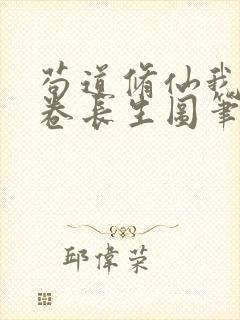 苟道脩仙我
卷長生圖筆
邱偉荣